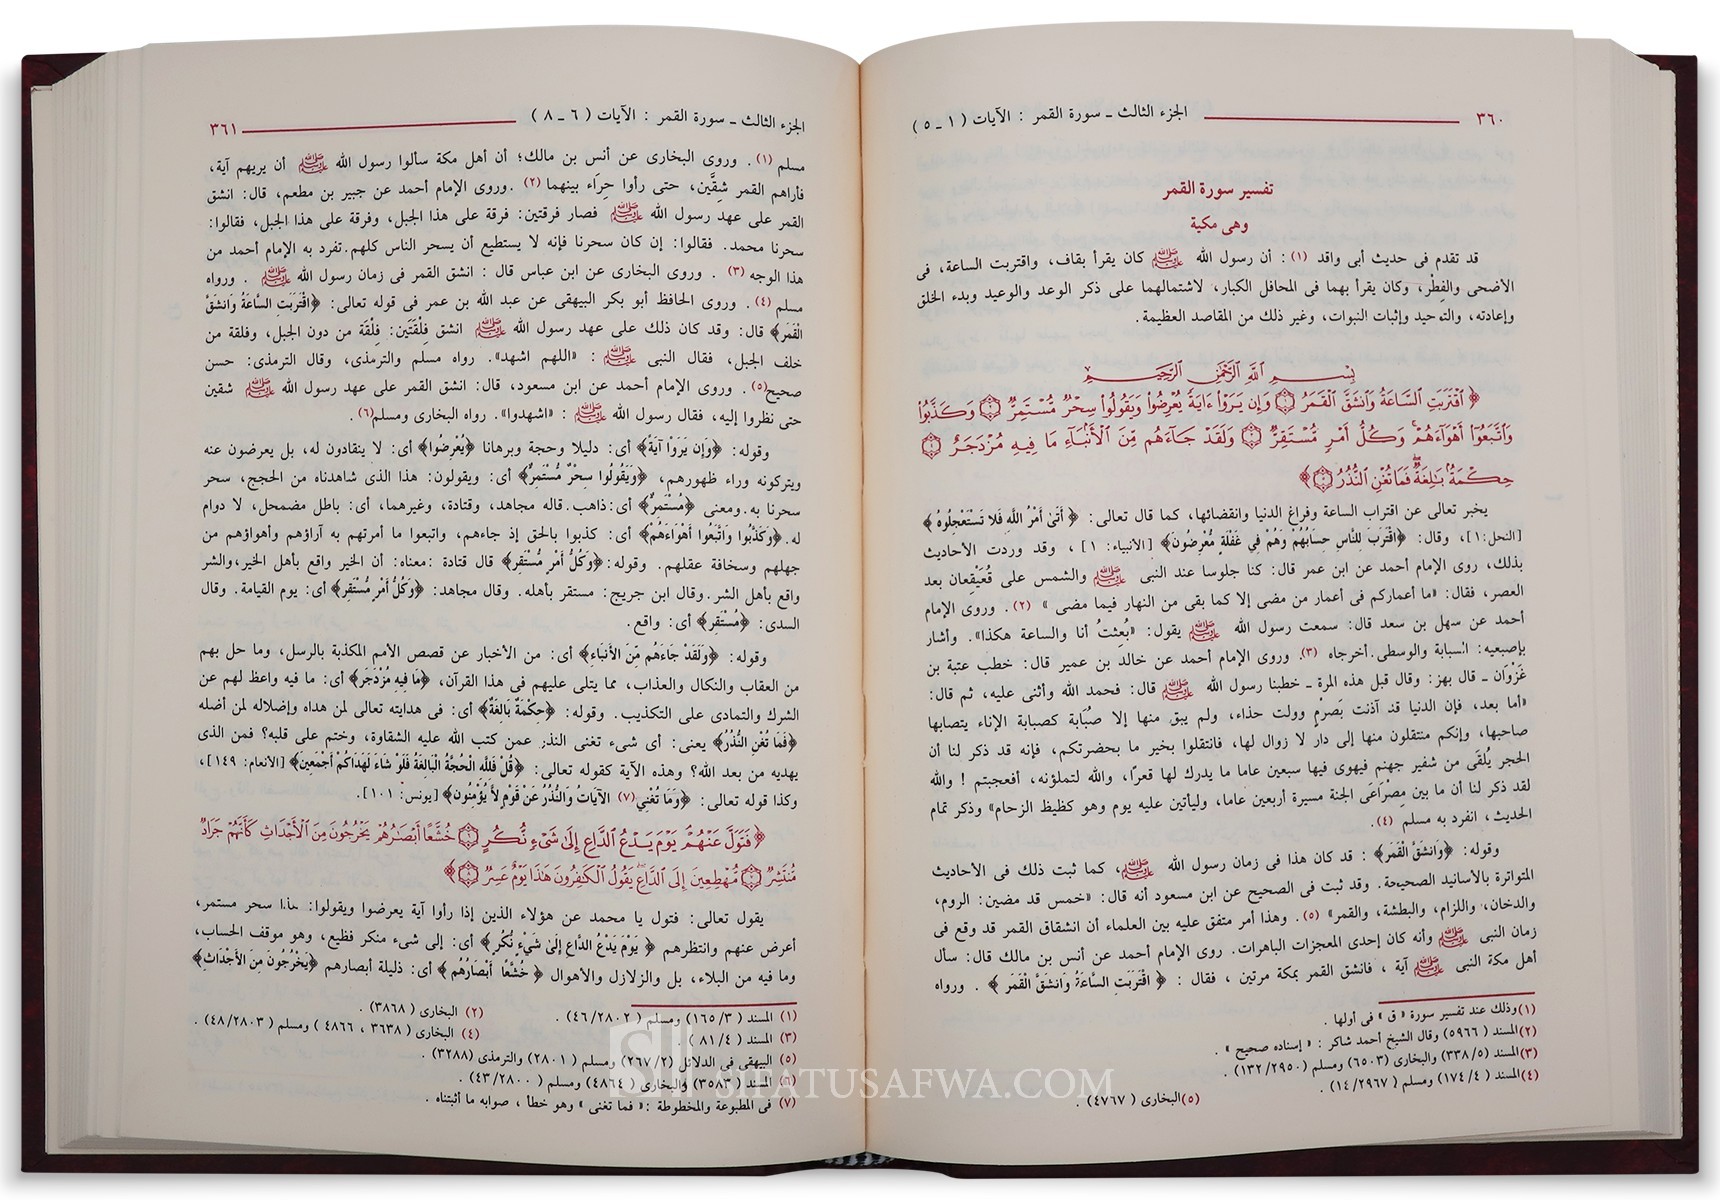 ٣٦٠ الجزء الثالث ـ سورة القمر : الآيات ( ١ ـ ٥ )
تفسير سورة القمر
وهى مكية
قد تقدم فى حديث أبى واقد (١) : أن رسول الله ﷺ كان يقرأ بقاف، واقتربت الساعة، فى
الأضحى والفِطْر، وكان يقرأ بهما فى المحافل الكبار، لاشتمالهما على ذكر الوعد والوعيد وبدء الخلق
وإعادته، والتوحيد وإثبات النبوات، وغير ذلك من المقاصد العظيمة.
بِسْمِ اللَّهِ الرَّحْمَٰنِ الرَّحِيمِ
﴿ ٱقْتَرَبَتِ ٱلسَّاعَةُ وَٱنشَقَّ ٱلْقَمَرُ ۝١ وَإِن يَرَوْا۟ ءَايَةً يُعْرِضُوا۟ وَيَقُولُوا۟ سِحْرٌ مُّسْتَمِرٌّ ۝٢ وَكَذَّبُوا۟
وَٱتَّبَعُوٓا۟ أَهْوَآءَهُمْ ۚ وَكُلُّ أَمْرٍ مُّسْتَقِرٌّ ۝٣ وَلَقَدْ جَآءَهُم مِّنَ ٱلْأَنۢبَآءِ مَا فِيهِ مُزْدَجَرٌ ۝٤
حِكْمَةٌۢ بَٰلِغَةٌ ۖ فَمَا تُغْنِ ٱلنُّذُرُ ۝٥ ﴾
يخبر تعالى عن اقتراب الساعة وفراغ الدنيا وانقضائها، كما قال تعالى: ﴿ أَتَىٰ أَمْرُ اللَّهِ فَلا تَسْتَعْجِلُوهُ ﴾
[النحل:١]، وقال: ﴿اقْتَرَبَ لِلنَّاسِ حِسَابُهُمْ وَهُمْ فِي غَفْلَةٍ مُّعْرِضُونَ﴾ [الأنبياء: ١] ، وقد وردت الأحاديث
بذلك، روى الإمام أحمد عن ابن عمر قال: كنا جلوسا عند النبى ﷺ والشمس على قُعَيْقِعان بعد
العصر، فقال: «ما أعماركم فى أعمار من مضى إلا كما بقى من النهار فيما مضى » (٢) . وروى الإمام
أحمد عن سهل بن سعد قال: سمعت رسول الله ﷺ يقول: «بُعِثتُ أنا والساعة هكذا». وأشار
بإصبعيه: السبابة والوسطى.أخرجاه (٣). وروى الإمام أحمد عن خالد بن عمير قال: خطب عتبة بن
غَزْوَان ـ قال بهز: وقال قبل هذه المرة ـ خطبنا رسول الله ﷺ قال: فحمد الله وأثنى عليه، ثم قال:
«أما بعد، فإن الدنيا قد آذنت بَصَرْمٍ وولت حذاء، ولم يبق منها إلا صُبَابة كصبابة الإناء يتصابها
صاحبها، وإنكم منتقلون منها إلى دار لا زوال لها، فانتقلوا بخير ما بحضرتكم، فإنه قد ذكر لنا أن
الحجر يُلقَى من شفير جهنم فيهوى فيها سبعين عاما ما يدرك لها قعرًا، والله لتملؤنه، أفعجبتم ! والله
لقد ذكر لنا أن ما بين مِصْرَاعَى الجنة مسيرة أربعين عاما، وليأتين عليه يوم وهو كظيظ الزحام» وذكر تمام
الحديث، انفرد به مسلم (٤).
وقوله: ﴿وَانشَقَّ الْقَمَرُ﴾ : قد كان هذا فى زمان رسول الله ﷺ، كما ثبت ذلك فى الأحاديث
المتواترة بالأسانيد الصحيحة. وقد ثبت فى الصحيح عن ابن مسعود أنه قال: «خمس قد مضين: الروم،
والدخان، واللزام، والبطشة، والقمر» (٥). وهذا أمر متفق عليه بين العلماء أن انشقاق القمر قد وقع فى
زمان النبى ﷺ وأنه كان إحدى المعجزات الباهرات. روى الإمام أحمد عن أنس بن مالك قال: سأل
أهل مكة النبى ﷺ آية ، فانشق القمر بمكة مرتين ، فقال : ﴿ اقْتَرَبَتِ السَّاعَةُ وَانشَقَّ الْقَمَرُ ﴾ . ورواه
(١)وذلك عند تفسير سورة « ق » فى أولها .
(٢)المسند ( ٥٩٦٦) وقال الشيخ أحمد شاكر : « إسناده صحيح » .
(٣)المسند (٣٣٨/٥) والبخارى (٦٥٠٣) ومسلم (١٣٢/٢٩٥٠) .
(٤)المسند ( ١٧٤/٤) ومسلم ( ١٤/٢٩٦٧) .
(٥)البخارى ( ٤٧٦٧) .
الجزء الثالث ـ سورة القمر : الآيات ( ٦ ـ ٨ ) ٣٦١
مسلم (١) . وروى البخارى عن أنس بن مالك؛ أن أهل مكة سألوا رسول الله ﷺ أن يريهم آية،
فأراهم القمر شِقَّين، حتى رأوا حِرَاء بينهما (٢) .وروى الإمام أحمد عن جبير بن مطعم، قال: انشق
القمر على عهد رسول الله ﷺ فصار فرقتين: فرقة على هذا الجبل، وفرقة على هذا الجبل، فقالوا:
سحرنا محمد. فقالوا: إن كان سحرنا فإنه لا يستطيع أن يسحر الناس كلهم.تفرد به الإمام أحمد من
هذا الوجه (٣) . وروى البخارى عن ابن عباس قال : انشق القمر فى زمان رسول الله ﷺ . ورواه
مسلم (٤). وروى الحافظ أبو بكر البيهقى عن عبد الله بن عمر فى قوله تعالى: ﴿اقْتَرَبَتِ السَّاعَةُ وَانشَقَّ
الْقَمَرُ﴾ قال: وقد كان ذلك على عهد رسول الله ﷺ انشق فِلْقَتَين: فِلْقَة من دون الجبل، وفلقة من
خلف الجبل، فقال النبى ﷺ : «اللهم اشهد». رواه مسلم والترمذى، وقال الترمذى: حسن
صحيح(٥) . وروى الإمام أحمد عن ابن مسعود، قال: انشق القمر على عهد رسول الله ﷺ شقين
حتى نظروا إليه، فقال رسول الله ﷺ : «اشهدوا». رواه البخارى ومسلم(٦).
وقوله: ﴿وَإِن يَرَوْا آيَةً﴾ أى: دليلا وحجة وبرهانا ﴿يُعْرِضُوا﴾ أى: لا ينقادون له، بل يعرضون عنه
ويتركونه وراء ظهورهم، ﴿وَيَقُولُوا سِحْرٌ مُّسْتَمِرٌّ﴾ أى: ويقولون: هذا الذى شاهدناه من الحجج، سحر
سحرنا به.ومعنى ﴿مُسْتَمِرٌّ﴾ أى:ذاهب.قاله مجاهد، وقتادة، وغيرهما، أى: باطل مضمحل، لا دوام
له.﴿وَكَذَّبُوا وَاتَّبَعُوا أَهْوَاءَهُمْ﴾ أى: كذبوا بالحق إذ جاءهم، واتبعوا ما أمرتهم به آراؤهم وأهواؤهم من
جهلهم وسخافة عقلهم. وقوله:﴿وَكُلُّ أَمْرٍ مُّسْتَقِرٌّ﴾ قال قتادة :معناه: أن الخير واقع بأهل الخير،والشر
واقع بأهل الشر.وقال ابن جريج: مستقر بأهله. وقال مجاهد: ﴿وَكُلُّ أَمْرٍ مُّسْتَقِرٌّ﴾ أى: يوم القيامة. وقال
السدى: ﴿مُسْتَقِرٌّ﴾ أى: واقع.
وقوله: ﴿وَلَقَدْ جَاءَهُم مِّنَ الأَنْبَاءِ﴾ أى: من الأخبار عن قصص الأمم المكذبة بالرسل، وما حل بهم
من العقاب والنكال والعذاب، مما يتلى عليهم فى هذا القرآن، ﴿مَا فِيهِ مُزْدَجَرٌ﴾ أى: ما فيه واعظ لهم عن
الشرك والتمادى على التكذيب. وقوله: ﴿حِكْمَةٌ بَالِغَةٌ﴾ أى: فى هدايته تعالى لمن هداه وإضلاله لمن أضله
﴿فَمَا تُغْنِ النُّذُرُ﴾ يعنى: أى شىء تغنى النذر عمن كتب الله عليه الشقاوة، وختم على قلبه؟ فمن الذى
يهديه من بعد الله؟ وهذه الآية كقوله تعالى: ﴿قُلْ فَلِلَّهِ الْحُجَّةُ الْبَالِغَةُ فَلَوْ شَاءَ لَهَدَاكُمْ أَجْمَعِينَ﴾ [الأنعام: ١٤٩]،
وكذا قوله تعالى: ﴿وَمَا تُغْنِي(٧) الآيَاتُ وَالنُّذُرُ عَن قَوْمٍ لاَّ يُؤْمِنُونَ﴾ [يونس: ١٠١].
﴿ فَتَوَلَّ عَنْهُمْ ۘ يَوْمَ يَدْعُ ٱلدَّاعِ إِلَىٰ شَىْءٍ نُّكُرٍ ۝٦ خُشَّعًا أَبْصَٰرُهُمْ يَخْرُجُونَ مِنَ ٱلْأَجْدَاثِ كَأَنَّهُمْ جَرَادٌ
مُّنتَشِرٌ ۝٧ مُّهْطِعِينَ إِلَى ٱلدَّاعِ ۖ يَقُولُ ٱلْكَٰفِرُونَ هَٰذَا يَوْمٌ عَسِرٌ ۝٨ ﴾
يقول تعالى: فتول يا محمد عن هؤلاء الذين إذا رأوا آية يعرضوا ويقولوا: هذا سحر مستمر،
أعرض عنهم وانتظرهم ﴿ يَوْمَ يَدْعُ الدَّاعِ إِلَىٰ شَيْءٍ نُّكُرٍ ﴾ أى: إلى شىء منكر فظيع، وهو موقف الحساب،
وما فيه من البلاء، بل والزلازل والأهوال ﴿ خُشَّعًا أَبْصَارُهُم ﴾ أى: ذليلة أبصارهم ﴿يَخْرُجُونَ مِنَ الأَجْدَاثِ﴾
(١) المسند ( ١٦٥/٣) ومسلم ( ٤٦/٢٨٠٢ . (٢) البخارى ( ٣٨٦٨) .
(٣) المسند ( ٨١/٤ ) (٤) البخارى ( ٣٦٣٨ ، ٤٨٦٦ ) ومسلم ( ٤٨/٢٨٠٣) .
(٥) البيهقى فى الدلائل (٢٦٧/٢) ومسلم ( ٢٨٠١ ) والترمذى (٣٢٨٨) .
(٦) المسند ( ٣٥٨٣) والبخارى ( ٤٨٦٤) ومسلم ( ٤٣/٢٨٠٠ ) .
(٧) فى المطبوعة والمخطوطة :« فما تغنى » وهو خطأ ، صوابه ما أثبتناه .
SIFATUSAFWA.COM